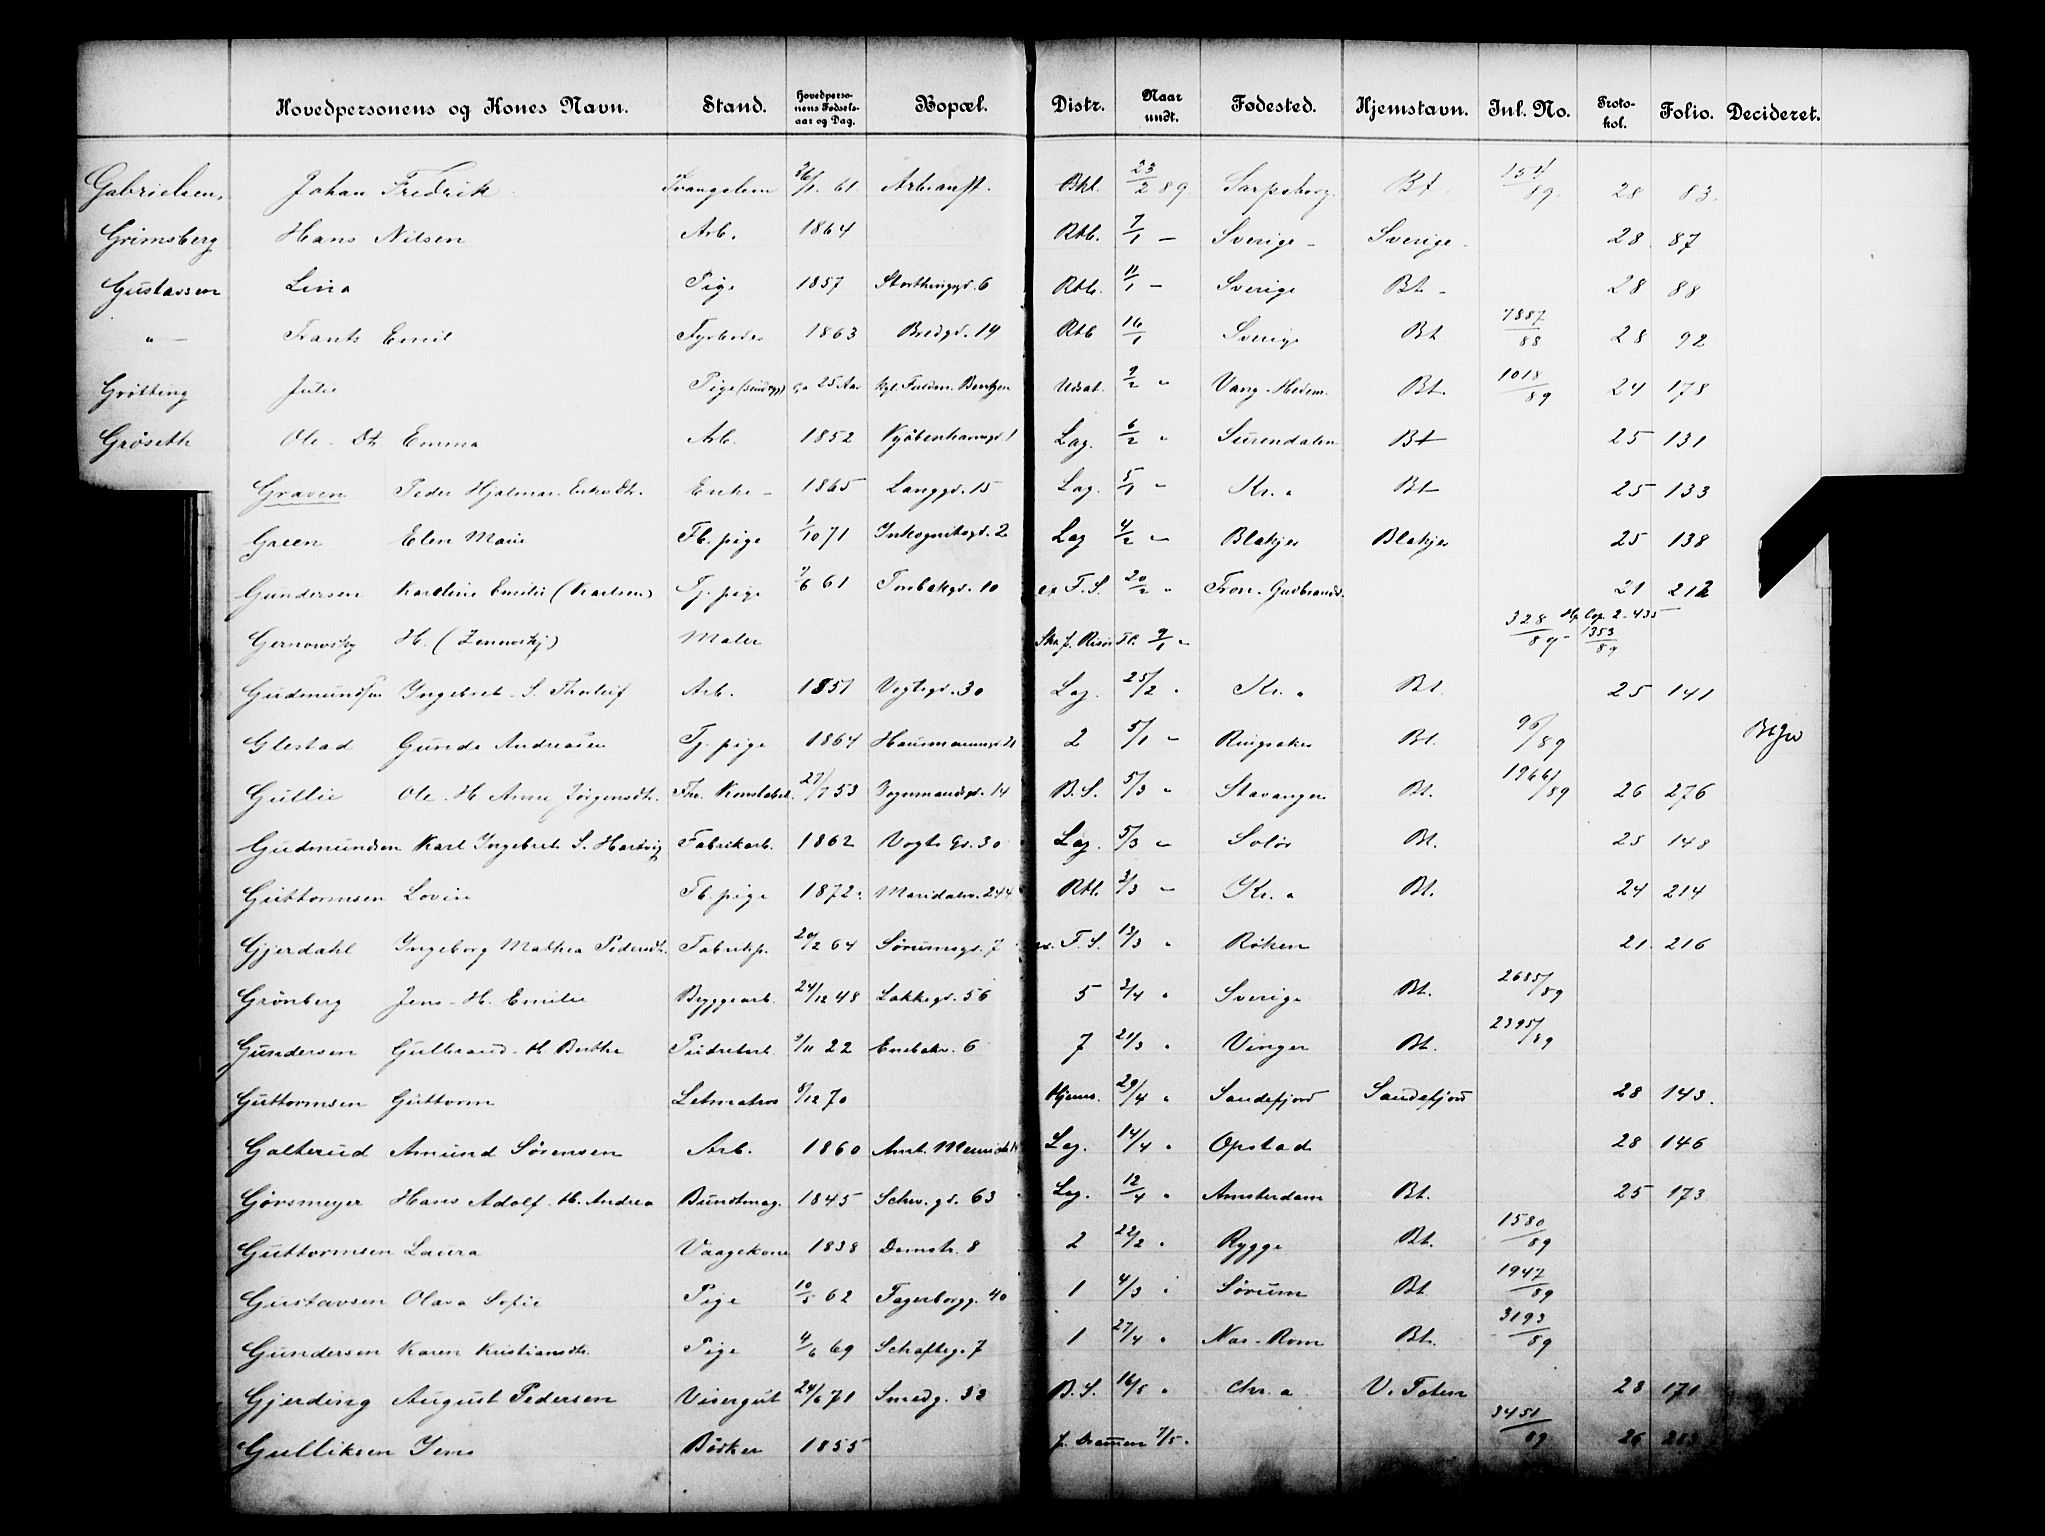 Hovedpersonens og Kones Navn. Stand. Hovedpersonens Fødselsaar og Dag. Bopæl. Distr. Naar undt. Fødested. Hjemstavn. Inl. No. Protokol. Folio. Decideret.
Gabrielsen, Johan Fredrik 61 Arbeanst. Bkl. 23/2 89. Sarpsborg. Bt. 28 83.
Grimsberg Hans Nilsen Arb. 1864 Rtb. 7/1 — Sverige – Sverige – 28 87
Gustavsen Lina Pige 1857 Storthingsgd. 6 Rtb. 11/1 — Sverige Bt – 28 88
" — Frants Emil Fyrbøder 1863 Bredgd. 14 Rtb 16/1 Sverige Bt 7887/88 28 92
Grötting Julie Pige ca 25 Aar Udsat. 9/2 " Vang. Hedem. Bt. 1018/89 24 178
Gröseth Ole. Emma Arb. 1852 Kjöbenhavngd. 1 Lag. 6/2 " Surendalen Bt 25 131
Graven Peder Hjalmar. Enke – 1865 Langgd. 15 Lag. 5/1 " Kr. a Bt 25 133
Green Elen Marie Fb. pige 1/10 71 Inkognitogd. 2 Lag 4/2 " Blakjer Blakjer 25 138
Gundersen Karoline Emilie (Karlsen) Tj. pige 61 Torbakgd. 10 F. S. 20/2 " Fron. Gudbrandsd. 21 212
Gernowsky H. (Zernowsky) Maler f. Risør 9/1 " 328/89 – 1353/89 Cop. 2. 435
Gudmundsen Ingebret. S. Thorleif Arb. 1851 Vogtsgd. 30 Lag. 25/2 " Kr. a Bt. 25 141
Glestad Gunda Andreasen Tj. pige 1864 Hausmannsgd. 21 2 5/1 " Ringsaker Bt. 96/89
Gullie Ole. H. Anne Jørgensdtr. Konstabel. 53 14 B. S. 5/3 " Stavanger Bt. 1966/89 26 276
Gudmundsen Karl Ingebret S. Hartvig Fabrikarb. 1862 Vogts Gd. 30 Lag. 5/3 " Solör Bt. 25 148
Guttormsen Lovise Fb. pige 1872. Maridalsv. 244 Rtb. 3/3 " Kr. a Bt. 24 214
Gjerdahl Ingeborg Mathea Pedersdtr. Fabrikp. 20/2 64 Sörumsgd. 7 F. S. 13/3 " Röken 21 216
Grönberg Jens. H. Emilie Byggearb. 24/12 48 Lakkegd. 56 5 2/4 " Sverige Bt. 2685/89
Gundersen Gulbrand. H. Berthe 9/11 22 Enebakv. 6 7 21/3 " Vinger Bt. 2395/89
Guttormsen Guttorm Letmatros 8/12 70 Hjems. 29/4 " Sandefjord Sandefjord 28 143.
Galterud Amund Sörensen Arb. 1860 Lag. 14/4 " Opstad 28 146
Gjörsmeyer Hans Adolf. H. Andrea Buntmag. 1845 Schw. gd. 63 Lag. 12/4 " Amsterdam Bt. 25 173
Guttormsen Laura Vaagekone 1838 Damstr. 8 2 22/2 " Rygge Bt. 1580/89
Gustavsen Olava Sofie Pige 62 Fagerborgg. 40 1 4/3 " Sörum Bt 1947/89
Gundersen Karen Kristiansdtr. Pige 4/6 69 Schafteg. 7 1 27/4 " Næs – Rom Bt. 3193/89
Gjerding August Pedersen Visergut 24/6 71 Smedg. 33 B. S. 16/5 " Chr. a V. Toten 28 171
Gulliksen Jens Bödker 1855 f. Drammen 7/5. 3451/89 26 283